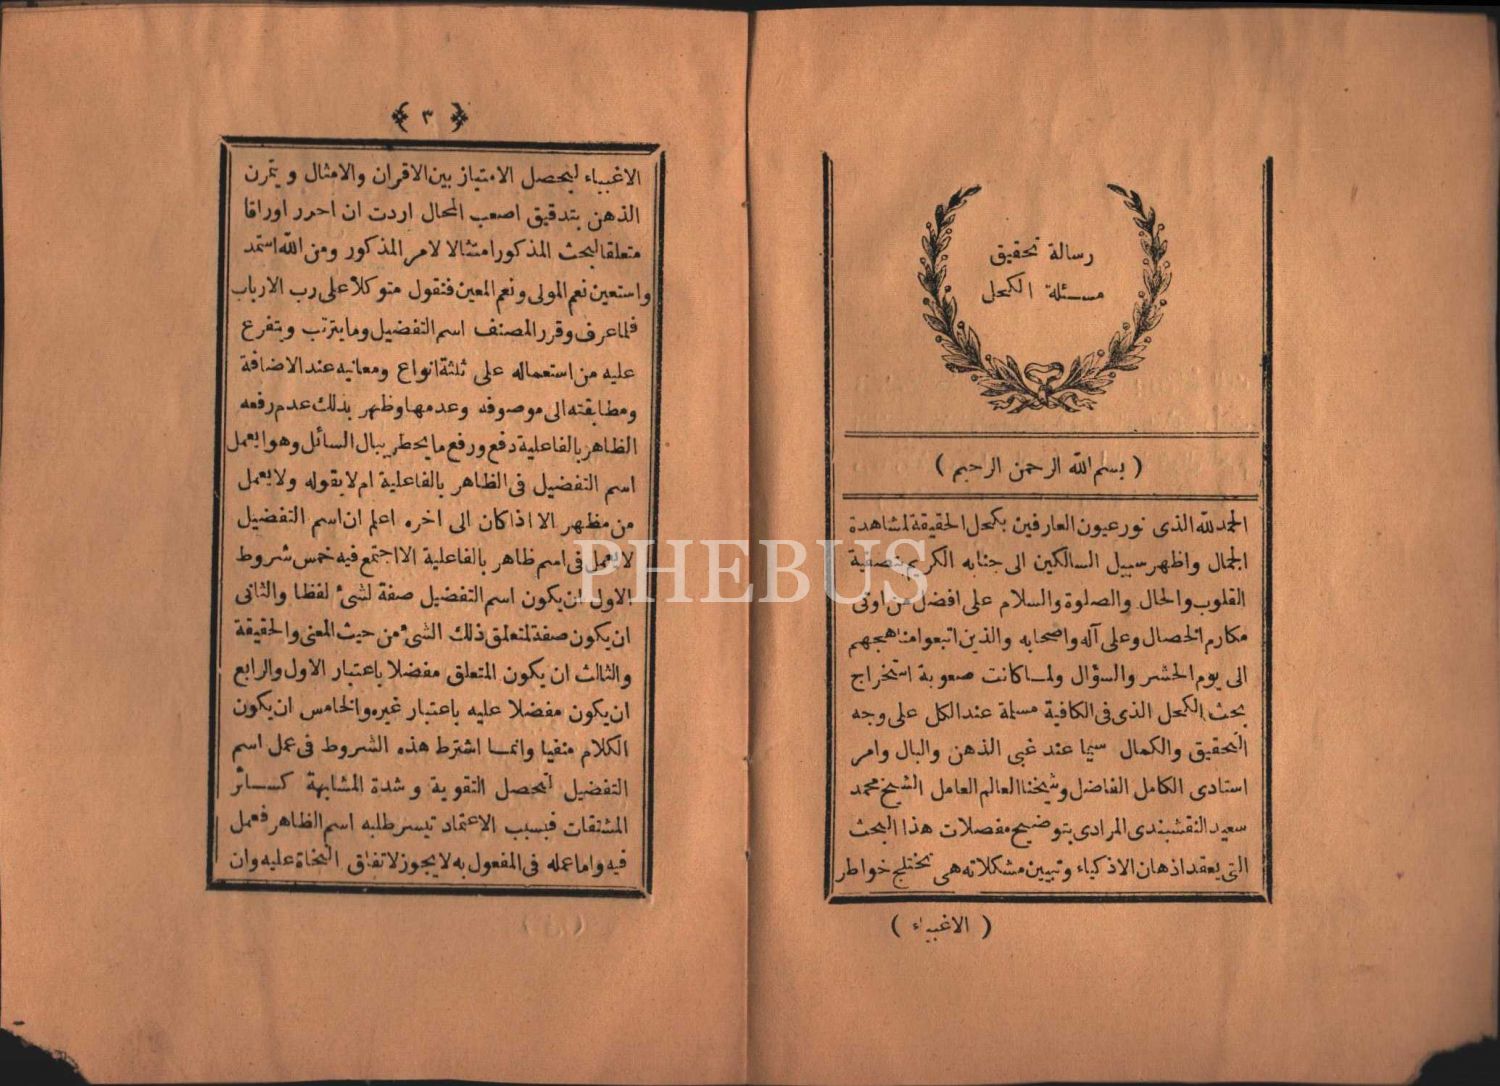 رسالة تحقيق
مسئلة الكحل
( بسم الله الرحمن الرحيم )
الحمد لله الذى نور عيون العارفين بكحل الحقيقة لمشاهدة
الجمال واظهر سبيل السالكين الى جنابه الكريم بتصفية
القلوب والحال والصلوة والسلام على افضل من اوتى
مكارم الخصال وعلى آله واصحابه والذين اتبعوا مناهجهم
الى يوم الحشر والسؤال ولما كانت صعوبة استخراج
بحث الكحل الذى فى الكافية مسلمة عند الكل على وجه
التحقيق والكمال سيما عند غبى الذهن والبال وامر
استادى الكامل الفاضل وشيخنا العالم العامل الشيخ محمد
سعيد النقشبندى المرادى بتوضيح مفصلات هذا البحث
التى يعقد اذهان الاذكياء وتبيين مشكلاته هى تختلج خواطر
( الاغبياء )
٣
الاغبياء ليحصل الامتياز بين الاقران والامثال ويتمرن
الذهن بتدقيق اصعب المحال اردت ان احرر اوراقا
متعلقا لبحث المذكور امتثالا لامر المذكور ومن الله استمد
واستعين نعم المولى ونعم المعين فنقول متوكلا على رب الارباب
فلما عرف وقرر المصنف اسم التفضيل وما يترتب ويتفرع
عليه من استعماله على ثلثة انواع ومعانيه عند الاضافة
ومطابقته الى موصوفه وعدمها وظهر بذلك عدم رفعه
الظاهر بالفاعلية دفع ورفع ما يخطر ببال السائل وهو ايعمل
اسم التفضيل فى الظاهر بالفاعلية ام لا بقوله ولا يعمل
من مظهر الا اذا كان الى اخره اعلم ان اسم التفضيل
لا يعمل فى اسم ظاهر بالفاعلية الا اجتمع فيه خمس شروط
الاول ان يكون اسم التفضيل صفة لشئ لفظا والثانى
ان يكون صفة لمتعلق ذلك الشئ من حيث المعنى والحقيقة
والثالث ان يكون المتعلق مفضلا باعتبار الاول والرابع
ان يكون مفضلا عليه باعتبار غيره والخامس ان يكون
الكلام منفيا وانما اشترط هذه الشروط فى عمل اسم
التفضيل لتحصل التقوية وشدة المشابهة كسائر
المشتقات فبسبب الاعتماد تيسر طلبه اسم الظاهر فعمل
فيه واما عمله فى المفعول به لا يجوز لاتفاق النحاة عليه وان
PHEBUS